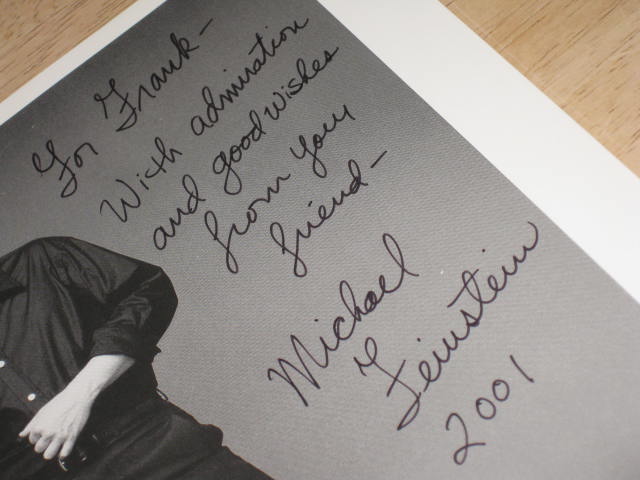 For Frank-
With admiration
and good wishes
from your
friend-
Michael
Feinstein
2001